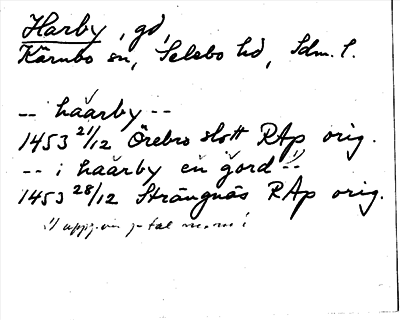 Harby, gd,
Kärnbo sn, Selebo hd, Sdm. l.
-- håårby --
1453 21/12 Örebro slott RAp orig.
-- i håårby en gord 1) --
1453 28/12 Strängnäs RAp orig.
1)